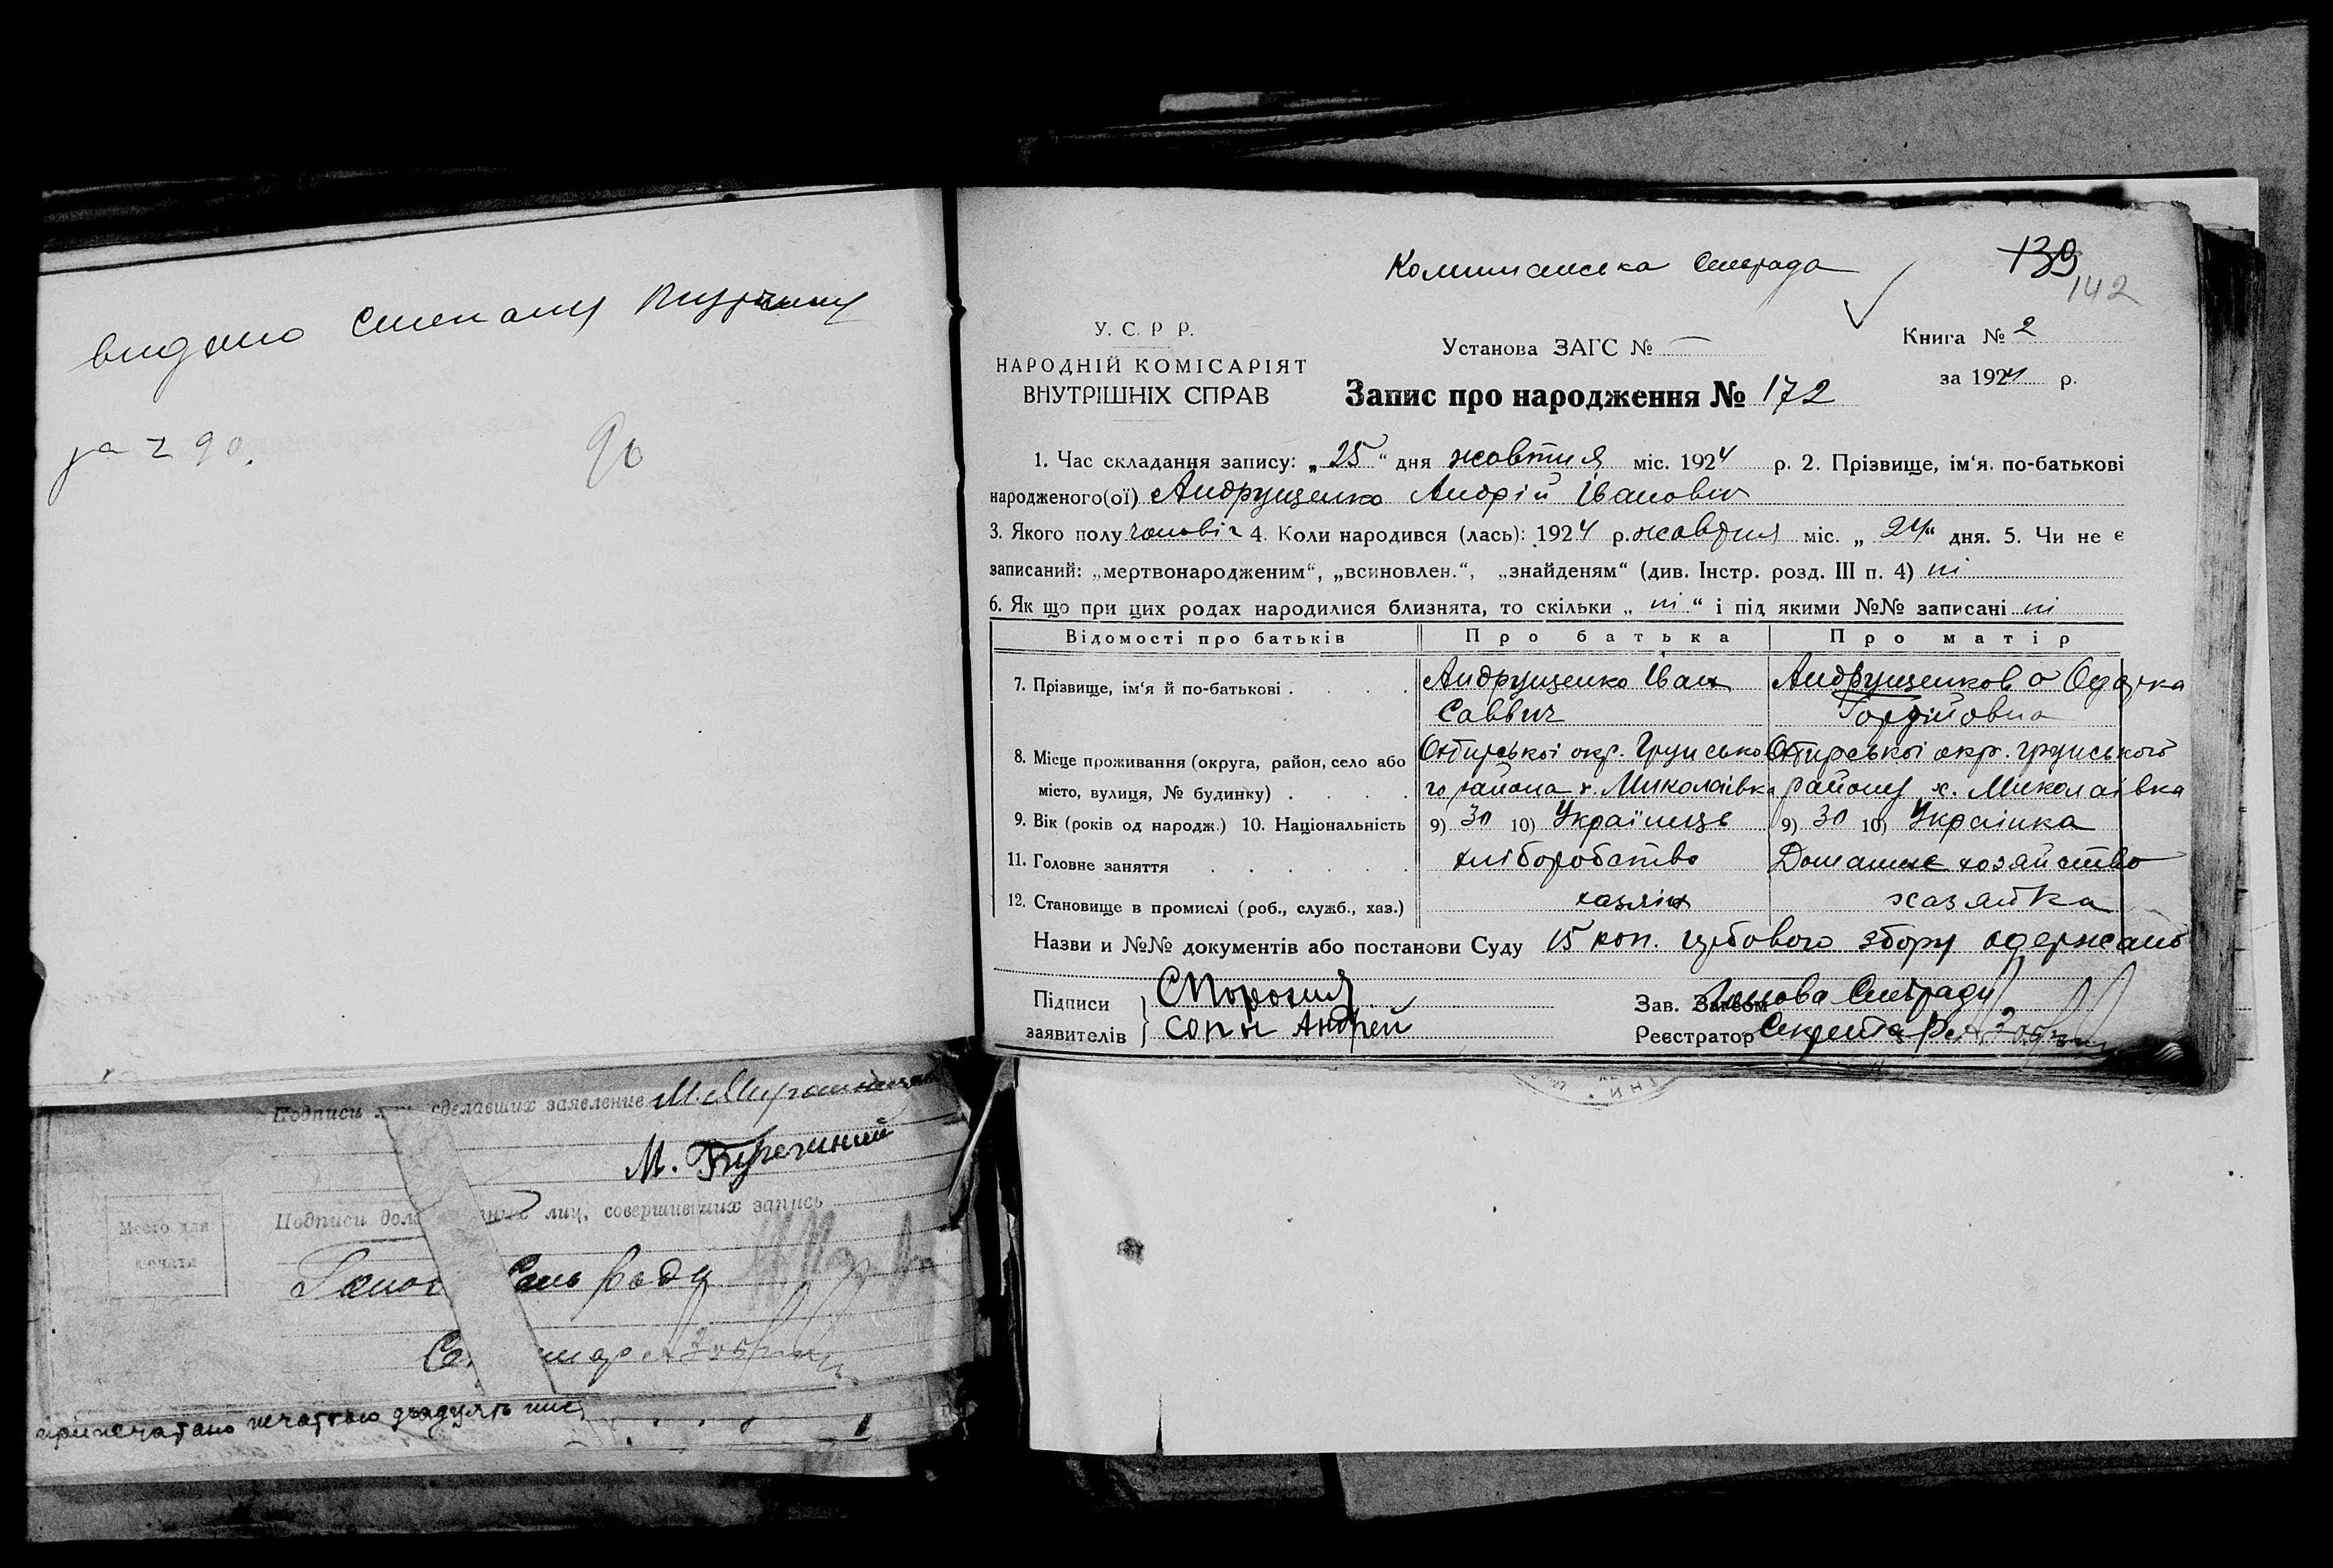 видано Степану
за № 90.
90
Подписи сделавших заявление М.
М.
Место для
печати
Подписи лиц, совершивших запись
Голов Сель ради
припечатано печаттю двадцять
Сельрада
139
142
У. С. Р Р.
НАРОДНІЙ КОМІСАРІЯТ
ВНУТРІШНІХ СПРАВ
Установа ЗАГС № —
Книга № 2
за 1924 р.
Запис про народження № 172
1. Час складання запису: „25“ дня жовтня міс. 1924 р. 2. Прізвище, ім‘я. по-батькові
народженого(ої) Андрущенко Андрій Іванович
3. Якого полу чоловіч 4. Коли народився (лась): 1924 р. жовтня міс. „24“ дня. 5. Чи не є
записаний: „мертвонародженим“, „всиновлен.“, „знайденям“ (див. Інстр. розд. III п. 4) ні
6. Як що при цих родах народилися близнята, то скільки „ні“ і під якими №№ записані ні
Відомості про батьків Про батька Про матір
7. Прізвище, ім‘я й по-батькові . . . . Андрущенко Іван Андрущенкова Одарка
Саввич Гордійовна
8. Місце проживання (округа, район, село або Охтирської окр. Грунсько Охтирської окр. грунського
місто, вулиця, № будинку) . . . . го района х. Миколаівка району х. Миколаівка
9. Вік (років од народж.) 10. Національність 9) 30 10) Українець 9) 30 10) Украінка
11. Головне заняття . . . . . . хліборобство Домашне хозяйство
12. Становище в промислі (роб., служб., хаз.) хазяін хазяйка
Назви и №№ документів або постанови Суду 15 коп. гербового збору одержано
Підписи
заявителів
Андрей
Зав. Загсом Голова Сельради
Реєстратор Секретарь